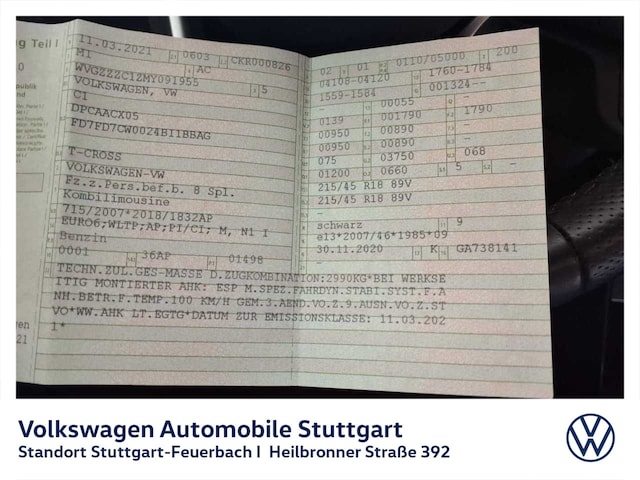 ng Teil I
11.03.2021 0603 CKR000826
M1 AC
WVGZZZC1ZMY091955 5
VOLKSWAGEN, VW
C1
DPCAACX05
FD7FD7CW0024BI1BBAG
T-CROSS
VOLKSWAGEN-VW
Fz.z.Pers.bef.b. 8 Spl.
Kombilimousine
715/2007*2018/1832AP
EURO6;WLTP;AP;PI/CI; M, N1 I
Benzin
0001 36AP 01498
02 01 0110/05000 200
04108-04120 1760-1784
1559-1584 001324--
00055
0139 001790 1790
00950 00890
00950 00890
075 03750 068
01200 0660 5 -
215/45 R18 89V
215/45 R18 89V
-
schwarz 9
e13*2007/46*1985*09
30.11.2020 K GA738141
TECHN.ZUL.GES-MASSE D.ZUGKOMBINATION:2990KG*BEI WERKSE
ITIG MONTIERTER AHK: ESP M.SPEZ.FAHRDYN.STABI.SYST.F.A
NH.BETR.F.TEMP.100 KM/H GEM.3.AEND.VO.Z.9.AUSN.VO.Z.ST
VO*WW.AHK LT.EGTG*DATUM ZUR EMISSIONSKLASSE: 11.03.202
1*
Volkswagen Automobile Stuttgart
Standort Stuttgart-Feuerbach I Heilbronner Straße 392